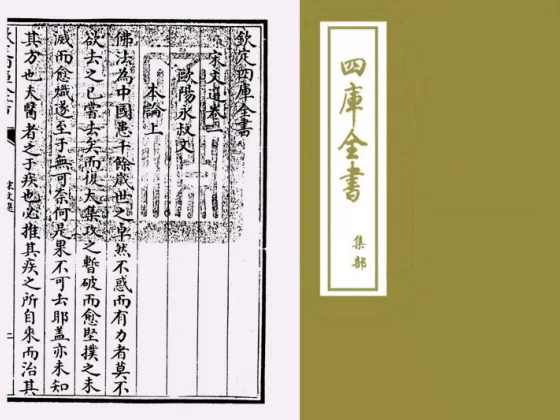 欽定四庫全書
宋文選卷一
歐陽永叔文
本論上
佛法為中國患千餘歲世之卓然不惑而有力者莫不
欲去之已嘗去矣而復大集攻之暫破而愈堅撲之未
滅而愈熾遂至于無可奈何是果不可去耶盖亦未知
其方也夫醫者之于疾也必推其疾之所自來而治其
宋文選
四庫全書
集部